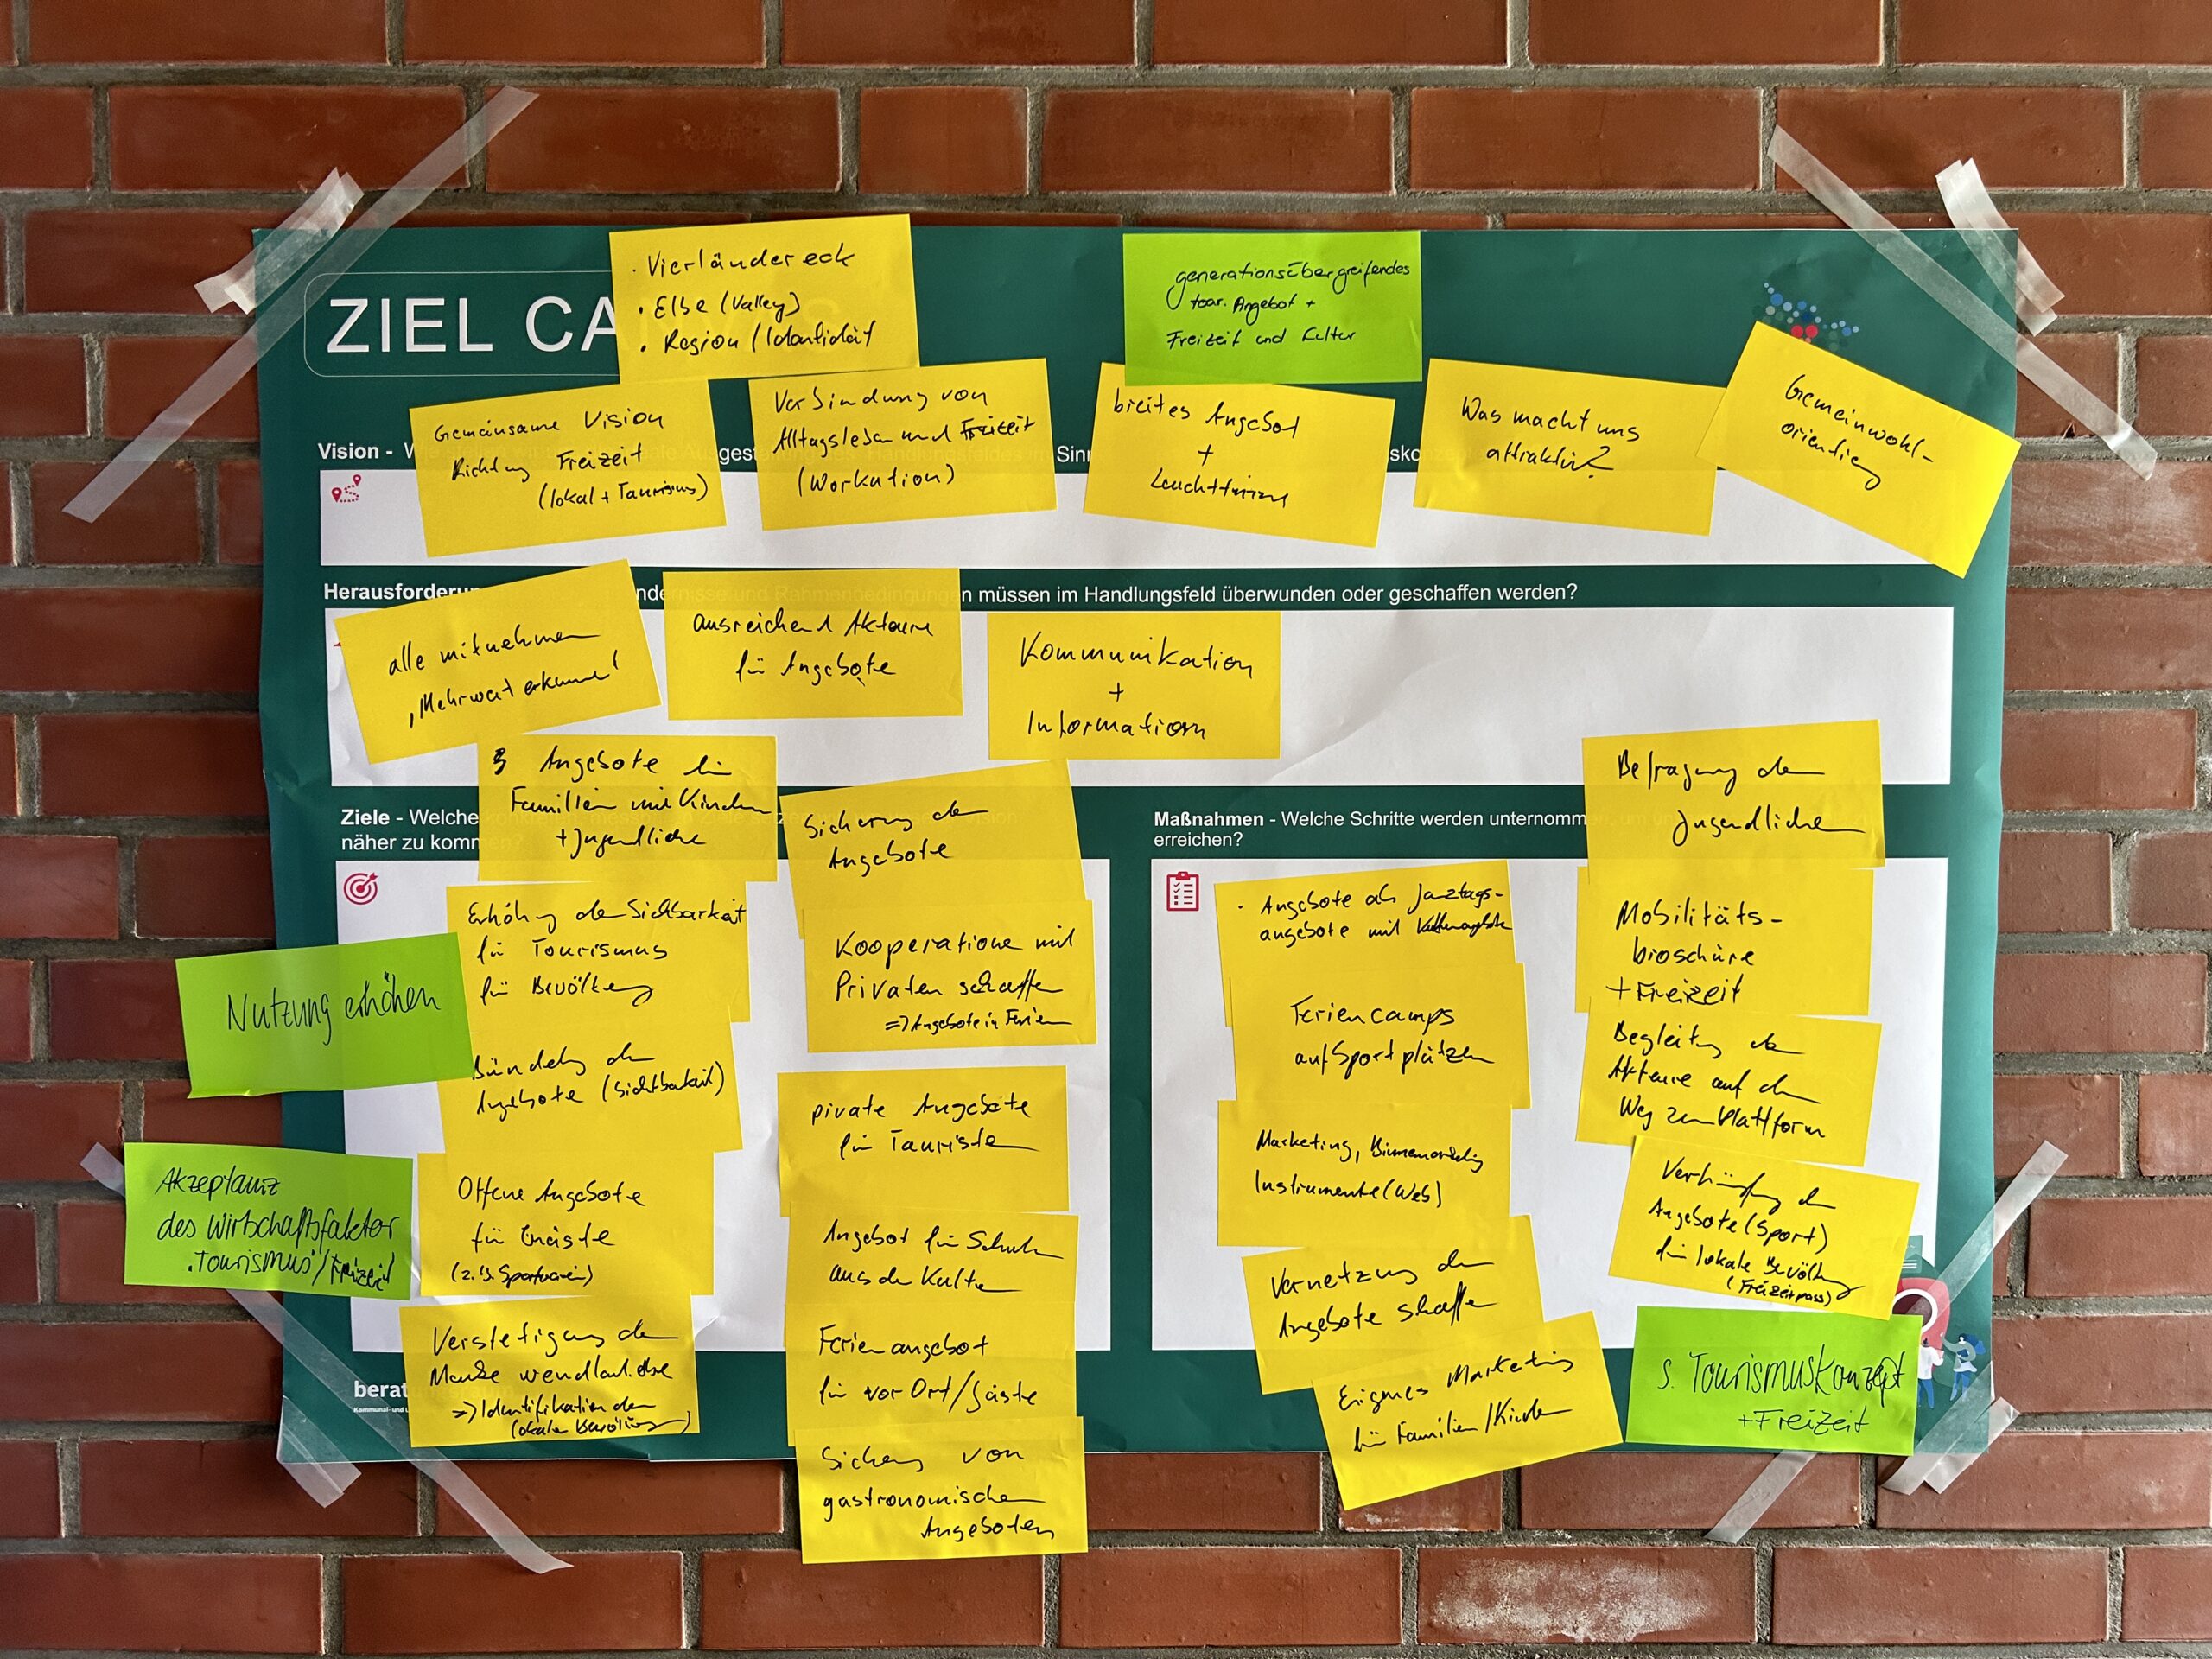 ZIEL CA
· Vierländereck
· Elbe (Valley)
· Region / Identität
generationsübergreifendes
tour. Angebot +
Freizeit und Kultur
Vision -
Gemeinsame Vision
Richtung Freizeit
(lokal + Tourismus)
Verbindung von
Alltagsleben und Freizeit
(Workation)
breites Angebot
+
Leuchttürme
Was macht uns
attraktiv?
Gemeinwohl-
orientierg
Herausforderun
n müssen im Handlungsfeld überwunden oder geschaffen werden?
alle mitnehmen
"Mehrwert erkennen"
ausreichend Akteure
für Angebote
Kommunikation
+
Information
Ziele - Welche
näher zu komm
Angebote für
Familien mit Kindern
+ Jugendliche
Erhöhg der Sichbarkeit
für Tourismus
für Bevölkerg
Nutzung erhöhen
Bündelg der
Angebote (Sichtbarkeit)
Akzeptanz
des Wirtschaftsfaktor
"Tourismus"/Freizeit
Offene Angebote
für Gäste
(z.B. Sportverein)
Verstetigung der
Marke wendland.elbe
=> Identifikation der
lokalen Bevölkerung)
Sicherung der
Angebote
Kooperationen mit
Privaten schaffen
=> Angebote in Ferien
private Angebote
für Touristen
Angebot für Schulen
aus der Kultur
Ferienangebot
für vor Ort/Gäste
Sicherg von
gastronomischen
Angeboten
Maßnahmen - Welche Schritte werden unternomm
erreichen?
· Angebote als Ganztags-
angebote mit Kulturangebote
Feriencamps
auf Sportplätzen
Marketing, Binnenmarketing
Instrumente (Web)
Vernetzung der
Angebote schaffen
Eigenes Marketing
für Familien/Kinder
Befragung der
Jugendlichen
Mobilitäts-
broschüre
+ Freizeit
Begleitung der
Akteure auf dem
Weg zur Plattform
Verknüpfung der
Angebote (Sport)
für lokale Bevölkerg
(Freizeitpass)
s. Tourismuskonzept
+ Freizeit
berat